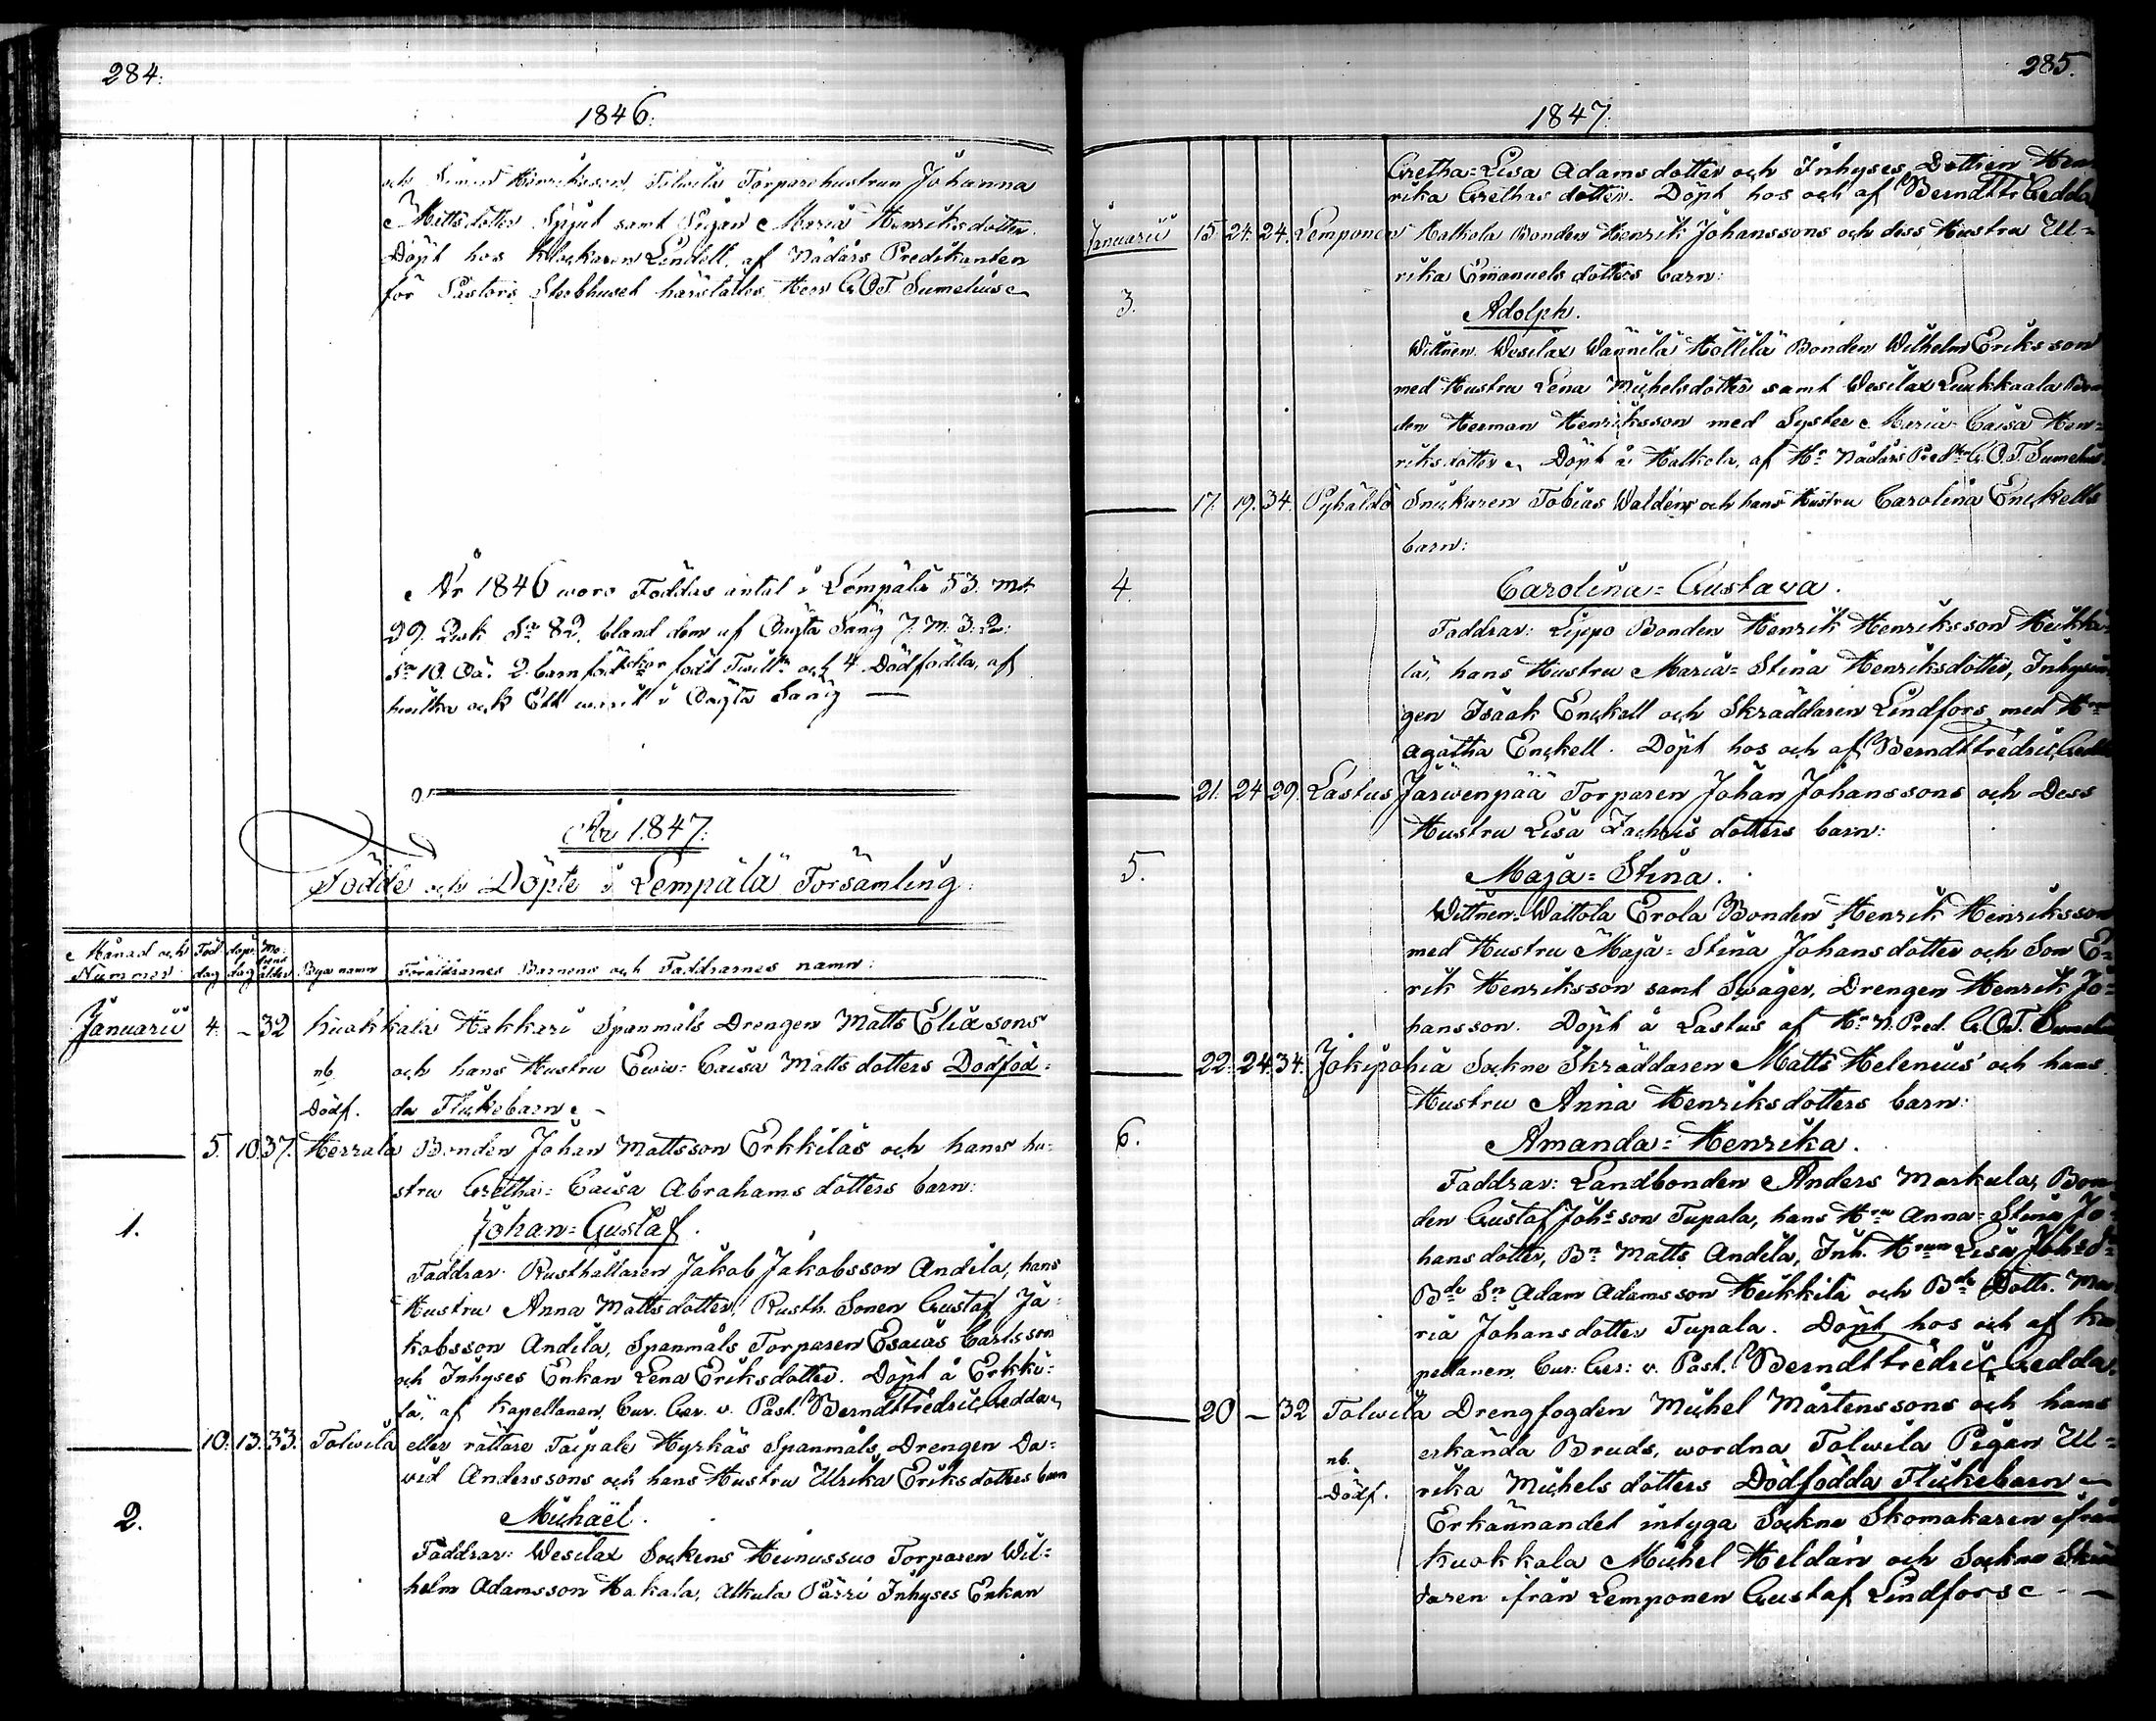 284.
1846.
och Simon Henriksson, Tolwila Torparehustrun Johanna
Mattsdotter Spjut samt Pigan Maria Henriksdotter.
Döpt hos Klockaren Lindell, af Nådårs Predikanten
för Pastors härstädes, Herr G.O.T. Sumelius
År 1846 woro Föddas antal i Lempälä 53. m.k.
29. Q.k. Sa 82, bland dem af Oägta Säng 7. M. 3. Q.
Sa 10. Oä. 2. barn född Twill. och 4 Dödfödda, af
hwilka ock Ett warit i Oägta Säng —
År 1847.
Födde och Döpte i Lempälä Församling.
Månad och Nummer
Föd dag
döpe dag
Mo drens ålder
Bya namn
Föräldrarnes Barnens och Faddrarnes namn:
Januarii 4. – 32 Kuokkala Hakkari Spanmåls Drengen Matts Eliæ sons
nb. och hans Hustru Ewa-Caisa Matts dotters Dödföd=
Dödf. da Flickebarn. –
5. 10. 37. Herrala Bonden Johan Mattsson Erkkiläs och hans hu=
stru Gretha-Caisa Abrahams dotters barn:
1. Johan=Gustaf.
Faddrar: Rusthållaren Jakob Jakobsson Andila, hans
Hustru Anna Mattsdotter, Rusth. Sonen Gustaf Ja=
kobsson Andila, Spanmåls Torparen Esaias Carlsson
och Inhyses Enkan Lena Eriksdotter. Döpt å Erkki=
lä, af Kapellanen, Cur. Ger. v. Past. Berndt Fredric Gedda
10. 13. 33. Tolwila eller rättare Taipale Hyrkäs Spanmåls Drengen Da=
vid Anderssons och hans Hustru Ulrika Eriksdotters barn
2. Michaël.
Faddrar: Wesilax Sockens Heinussuo Torparen Wil=
helm Adamsson Hakala, Alkula Pärri Inhyses Enkan
285.
1847.
Gretha=Lisa Adamsdotter och Inhyses Dottren Hen
rika Grethas dotter. Döpt hos och af Berndt Fr Gedda
Januarii 15. 24. 24. Lemponen Halkola Bonden Henrik Johanssons och dess Hustru Ul=
rika Emanuels dotters barn:
3. Adolph.
Wittnen. Wesilax Wännilä Höllilä Bonden Wilhelm Eriksson
med Hustru Lena Michelsdotter samt Wesilax Luukkaala Bon
den Herman Henriksson med Syster Maria Caisa Hen=
riksdotter. Döpt å Halkola, af Hr Nådårs Predkn G.O.T. Sumelius
17. 19. 34. Pyhältö Snickaren Tobias Waldéns och hans Hustru Carolina Enckells
barn:
4. Carolina=Gustava.
Faddrar: Lippo Bonden Henrik Henriksson Heikki
lä, hans Hustru Maria=Stina Henriksdotter, Inhyses
gen Isaak Enckell och Skräddaren Lindfors med Hru
Agatha Enckell. Döpt hos och af Berndt Fredric Gedda
21. 24 29. Lastus Järwenpää Torparen Johan Johanssons och Dess
Hustru Lisa Zachris dotters barn:
5. Maja=Stina.
Wittnen. Wattola Erola Bonden Henrik Henriksson
med Hustru Maja=Stina Johansdotter och Son E=
rik Henriksson samt Swåger, Drengen Henrik Jo=
hansson. Döpt å Lastus af Hr N. Pred. G.O.T. Sumelius
22. 24. 34. Jokipohia Sockne Skräddaren Matts Helenius' och hans
Hustru Anna Henriksdotters barn:
6. Amanda=Henrika.
Faddrar: Landbonden Anders Markula, Bon
den Gustaf Johs son Tupala, hans Hru Anna=Stina Jo
hansdotter, Bn Matts Andila, Inh. Hrun Lisa Johs d=
Bde Sn Adam Adamsson Heikkilä och Bde Dottr. Ma
ria Johansdotter Tupala. Döpt hos och af Ka
pellanen, Cur. Ger. v. Past. Berndt Fredric Gedda.
20 – 32 Tolwila Drengfogden Michel Mårtenssons och hans
nb. erkända Bruds, wordna Tolwila Pigan Ul=
Dödf. rika Michels dotters Dödfödda Flickebarn
Erkännandet intyga Sockne Skomakaren ifrån
Kuokkala Michel Heldán och Sockne Skräd
daren ifrån Lemponen Gustaf Lindfors –